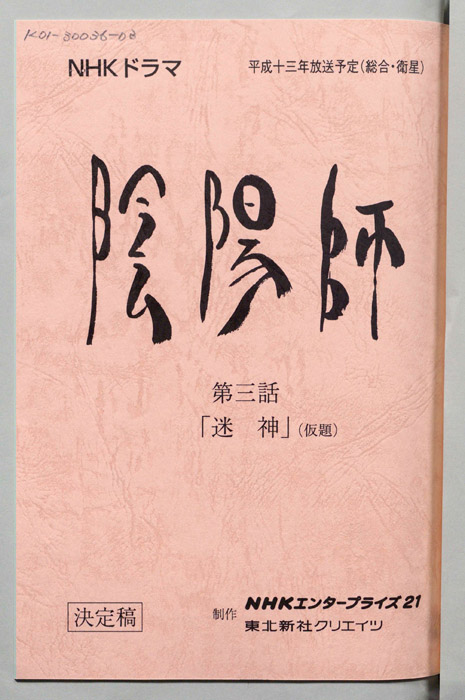 K01-30036-03
NHKドラマ
平成十三年放送予定(総合・衛星)
陰陽師
第三話
「迷 神」(仮題)
決定稿
制作 NHKエンタープライズ21
東北新社クリエイツ